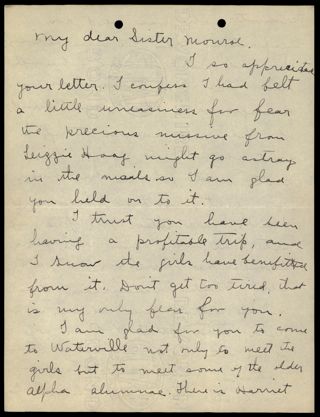 My dear Sister Monroe,
I so appreciated
your letter. I confess I had felt
a little uneasiness for fear
the precious missive from
Lizzie Hoag might go astray
in the mails so I am glad
you held on to it.
I trust you have been
having a profitable trip, and
I know the girls have benefitted
from it. Don't get too tired, that
is my only fear for you.
I am glad for you to come
to Waterville not only to meet the
girls but to meet some of the older
alpha alumnae. There is Harriet